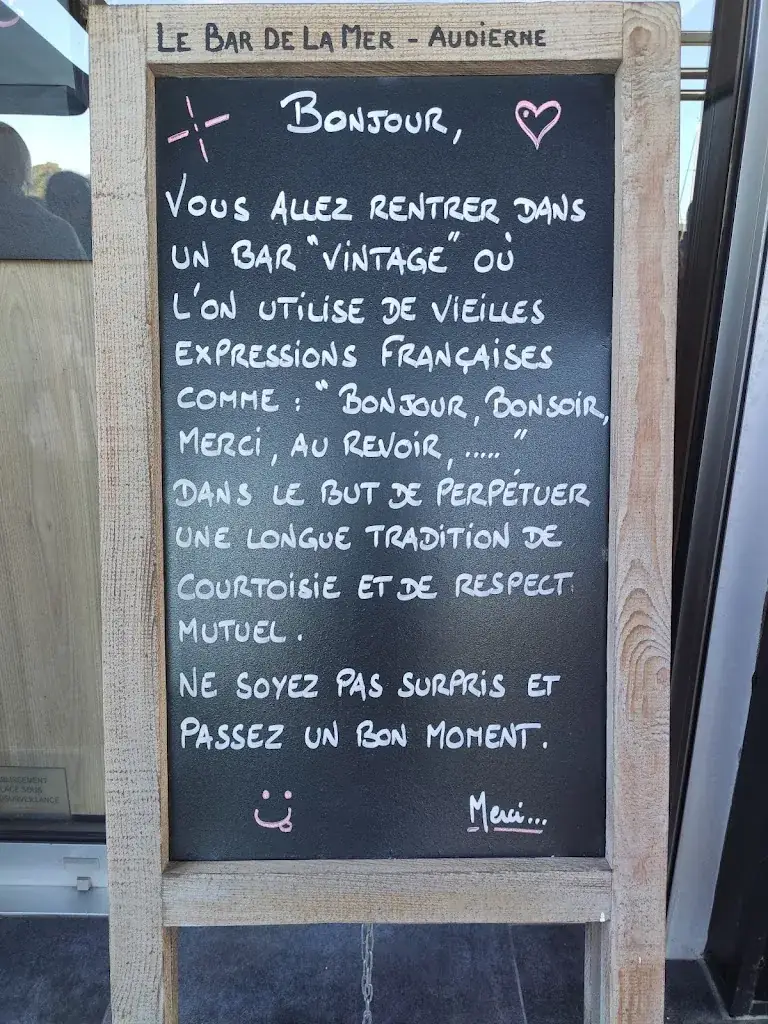 LE BAR DE LA MER - AUDIERNE
BONJOUR,
VOUS ALLEZ RENTRER DANS
UN BAR "VINTAGE" OÙ
L'ON UTILISE DE VIEILLES
EXPRESSIONS FRANÇAISES
COMME : "BONJOUR, BONSOIR,
MERCI, AU REVOIR, ....."
DANS LE BUT DE PERPÉTUER
UNE LONGUE TRADITION DE
COURTOISIE ET DE RESPECT
MUTUEL.
NE SOYEZ PAS SURPRIS ET
PASSEZ UN BON MOMENT.
Merci...